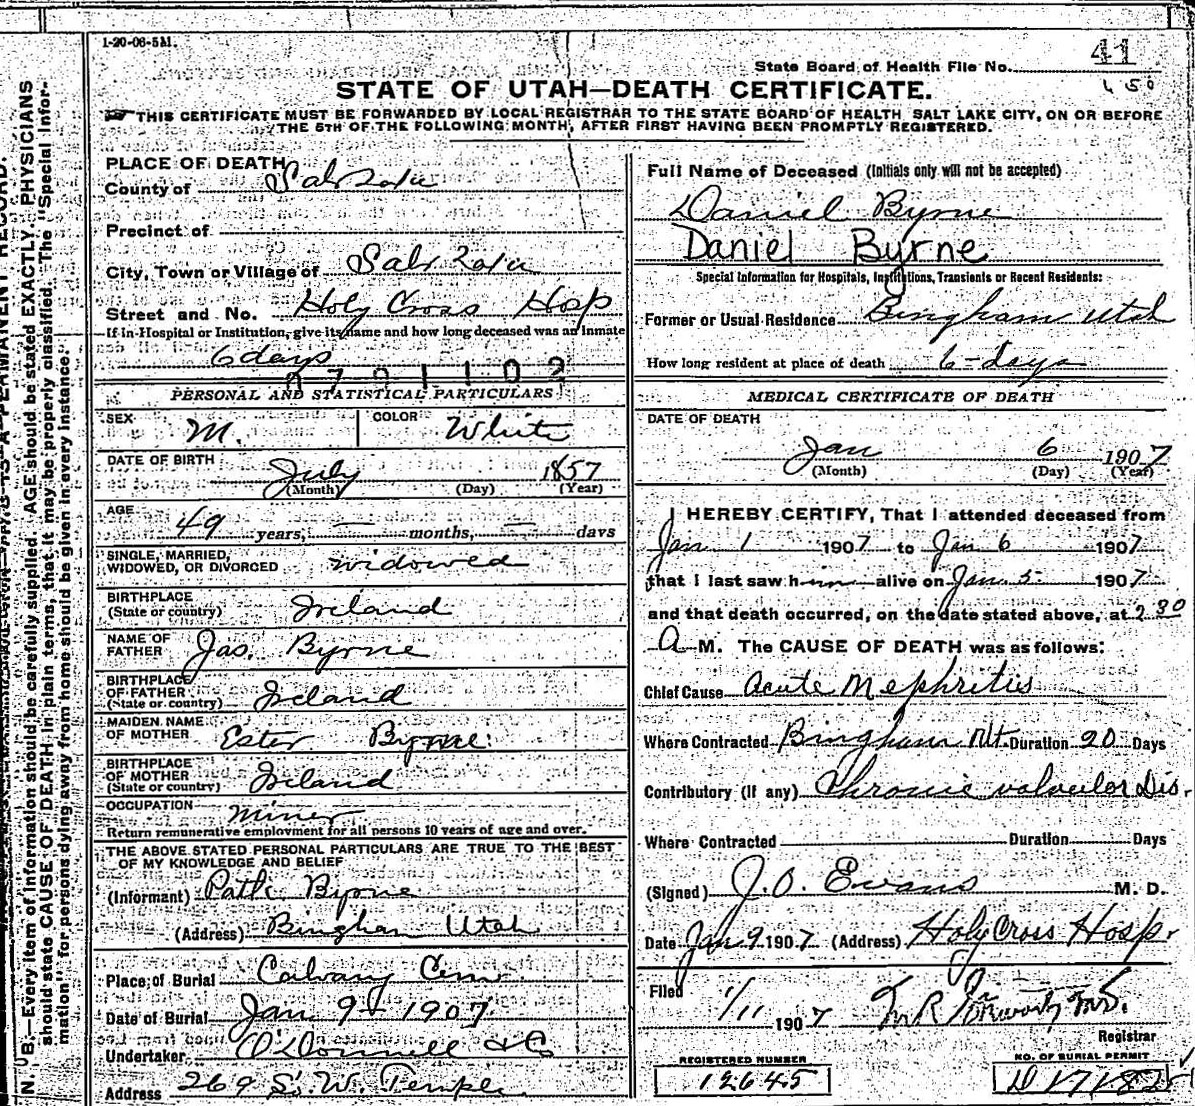 1-20-06-5M.
State Board of Health File No. 41
STATE OF UTAH—DEATH CERTIFICATE.
THIS CERTIFICATE MUST BE FORWARDED BY LOCAL REGISTRAR TO THE STATE BOARD OF HEALTH, SALT LAKE CITY, ON OR BEFORE
THE 5TH OF THE FOLLOWING MONTH, AFTER FIRST HAVING BEEN PROMPTLY REGISTERED.
PLACE OF DEATH
County of Salt Lake
Precinct of
City, Town or Village of Salt Lake
Street and No. Holy Cross Hosp
If in Hospital or Institution, give its name and how long deceased was an Inmate
6 days
0701102
PERSONAL AND STATISTICAL PARTICULARS
SEX M. COLOR White
DATE OF BIRTH
July 1857
(Month) (Day) (Year)
AGE
49 years, — months, — days
SINGLE, MARRIED,
WIDOWED, OR DIVORCED widowed
BIRTHPLACE
(State or country) Ireland
NAME OF
FATHER Jas. Byrne
BIRTHPLACE
OF FATHER
(State or country) Ireland
MAIDEN NAME
OF MOTHER Ester Byrne
BIRTHPLACE
OF MOTHER
(State or country) Ireland
OCCUPATION Miner
Return remunerative employment for all persons 10 years of age and over.
THE ABOVE STATED PERSONAL PARTICULARS ARE TRUE TO THE BEST
OF MY KNOWLEDGE AND BELIEF
(Informant) Patk Byrne
(Address) Bingham Utah
Place of Burial Calvary Cem
Date of Burial Jan 9th 1907
Undertaker O'Donnell & Co
Address 269 S. W. Temple
Full Name of Deceased (Initials only will not be accepted)
Daniel Byrne
Daniel Byrne
Special Information for Hospitals, Institutions, Transients or Recent Residents:
Former or Usual Residence Bingham Utah
How long resident at place of death 6-days
MEDICAL CERTIFICATE OF DEATH
DATE OF DEATH
Jan 6 1907
(Month) (Day) (Year)
I HEREBY CERTIFY, That I attended deceased from
Jan 1 1907 to Jan 6 1907
that I last saw him alive on Jan. 5 1907
and that death occurred, on the date stated above, at 2 30
A M. The CAUSE OF DEATH was as follows:
Chief Cause Acute Nephritis
Where Contracted Bingham Ut. Duration 20 Days
Contributory (if any) Chronic valvular Dis.
Where Contracted Duration Days
(Signed) J.O. Evans M. D.
Date Jan 9. 1907 (Address) Holy Cross Hosp.
Filed 1/11 1907
Registrar
REGISTERED NUMBER
12645
NO. OF BURIAL PERMIT
N. B.—Every item of information should be carefully supplied. AGE should be stated EXACTLY. PHYSICIANS
should state CAUSE OF DEATH in plain terms, that it may be properly classified. The "Special Infor-
mation" for persons dying away from home should be given in every instance.